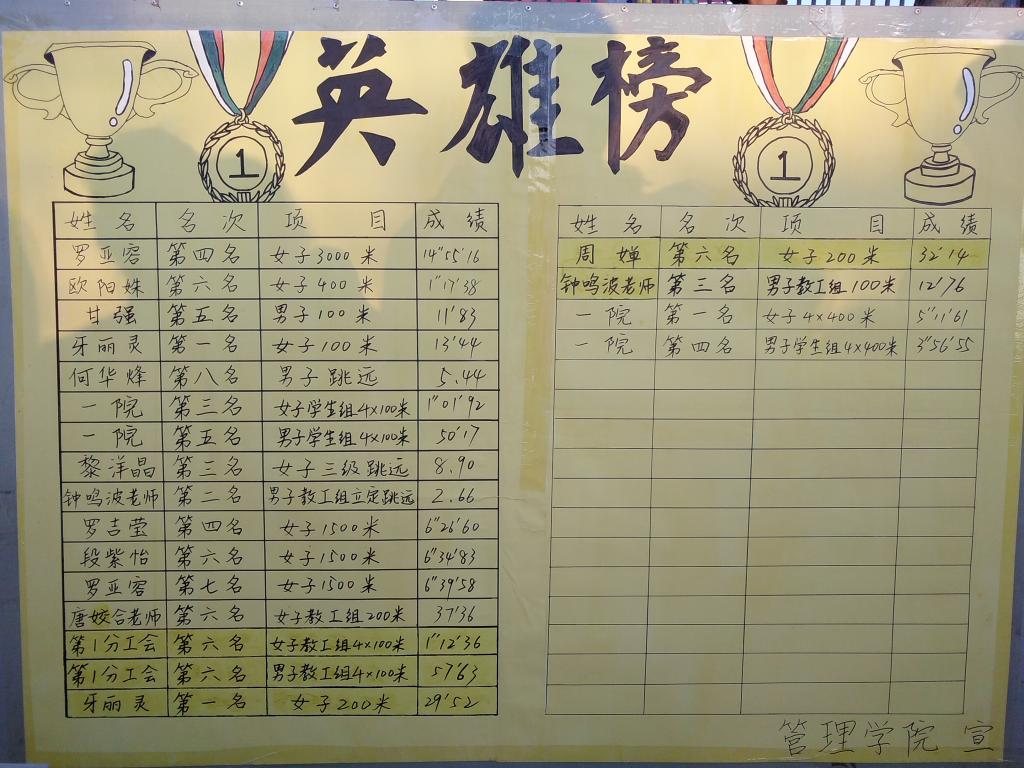 英雄榜
1
1
姓名 名次 项目 成绩
罗亚容 第四名 女子3000米 14"55'16
欧阳姝 第六名 女子400米 1"17'38
甘强 第五名 男子100米 11'83
牙丽灵 第一名 女子100米 13'44
何华烽 第八名 男子跳远 5.44
一院 第三名 女子学生组4×100米 1"01'92
一院 第五名 男子学生组4×100米 50'17
黎洋晶 第三名 女子三级跳远 8.90
钟鸣波老师 第二名 男子教工组立定跳远 2.66
罗吉莹 第四名 女子1500米 6"26'60
段紫怡 第六名 女子1500米 6"34'83
罗亚容 第七名 女子1500米 6"39'58
唐姣合老师 第六名 女子教工组200米 37'36
第1分工会 第六名 女子教工组4×100米 1"12'36
第1分工会 第六名 男子教工组4×100米 57'63
牙丽灵 第一名 女子200米 29'52
姓名 名次 项目 成绩
周婵 第六名 女子200米 32'14
钟鸣波老师 第三名 男子教工组100米 12'76
一院 第一名 女子4×400米 5"11'61
一院 第四名 男子学生组4×400米 3"56'55
管理学院 宣